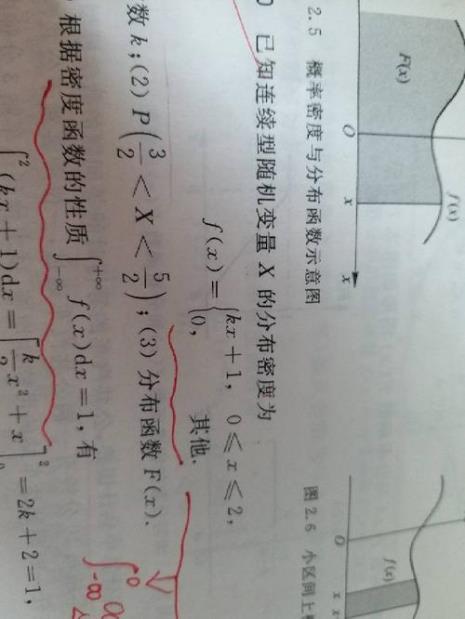 F(x)
f(x)
O
x
x
2.5 概率密度与分布函数示意图
f(x)
O
x
图 2.6 小区间上
已知连续型随机变量 X 的分布密度为
f(x)={kx+1, 0⩽x⩽2,
0, 其他.
数 k;(2) P(3/2<X<5/2);(3) 分布函数 F(x).
根据密度函数的性质∫_{-∞}^{+∞} f(x)dx=1,有
∫^2 (kx+1)dx=[k/2 x²+x]^2_0=2k+2=1,
∫_{-∞}^0